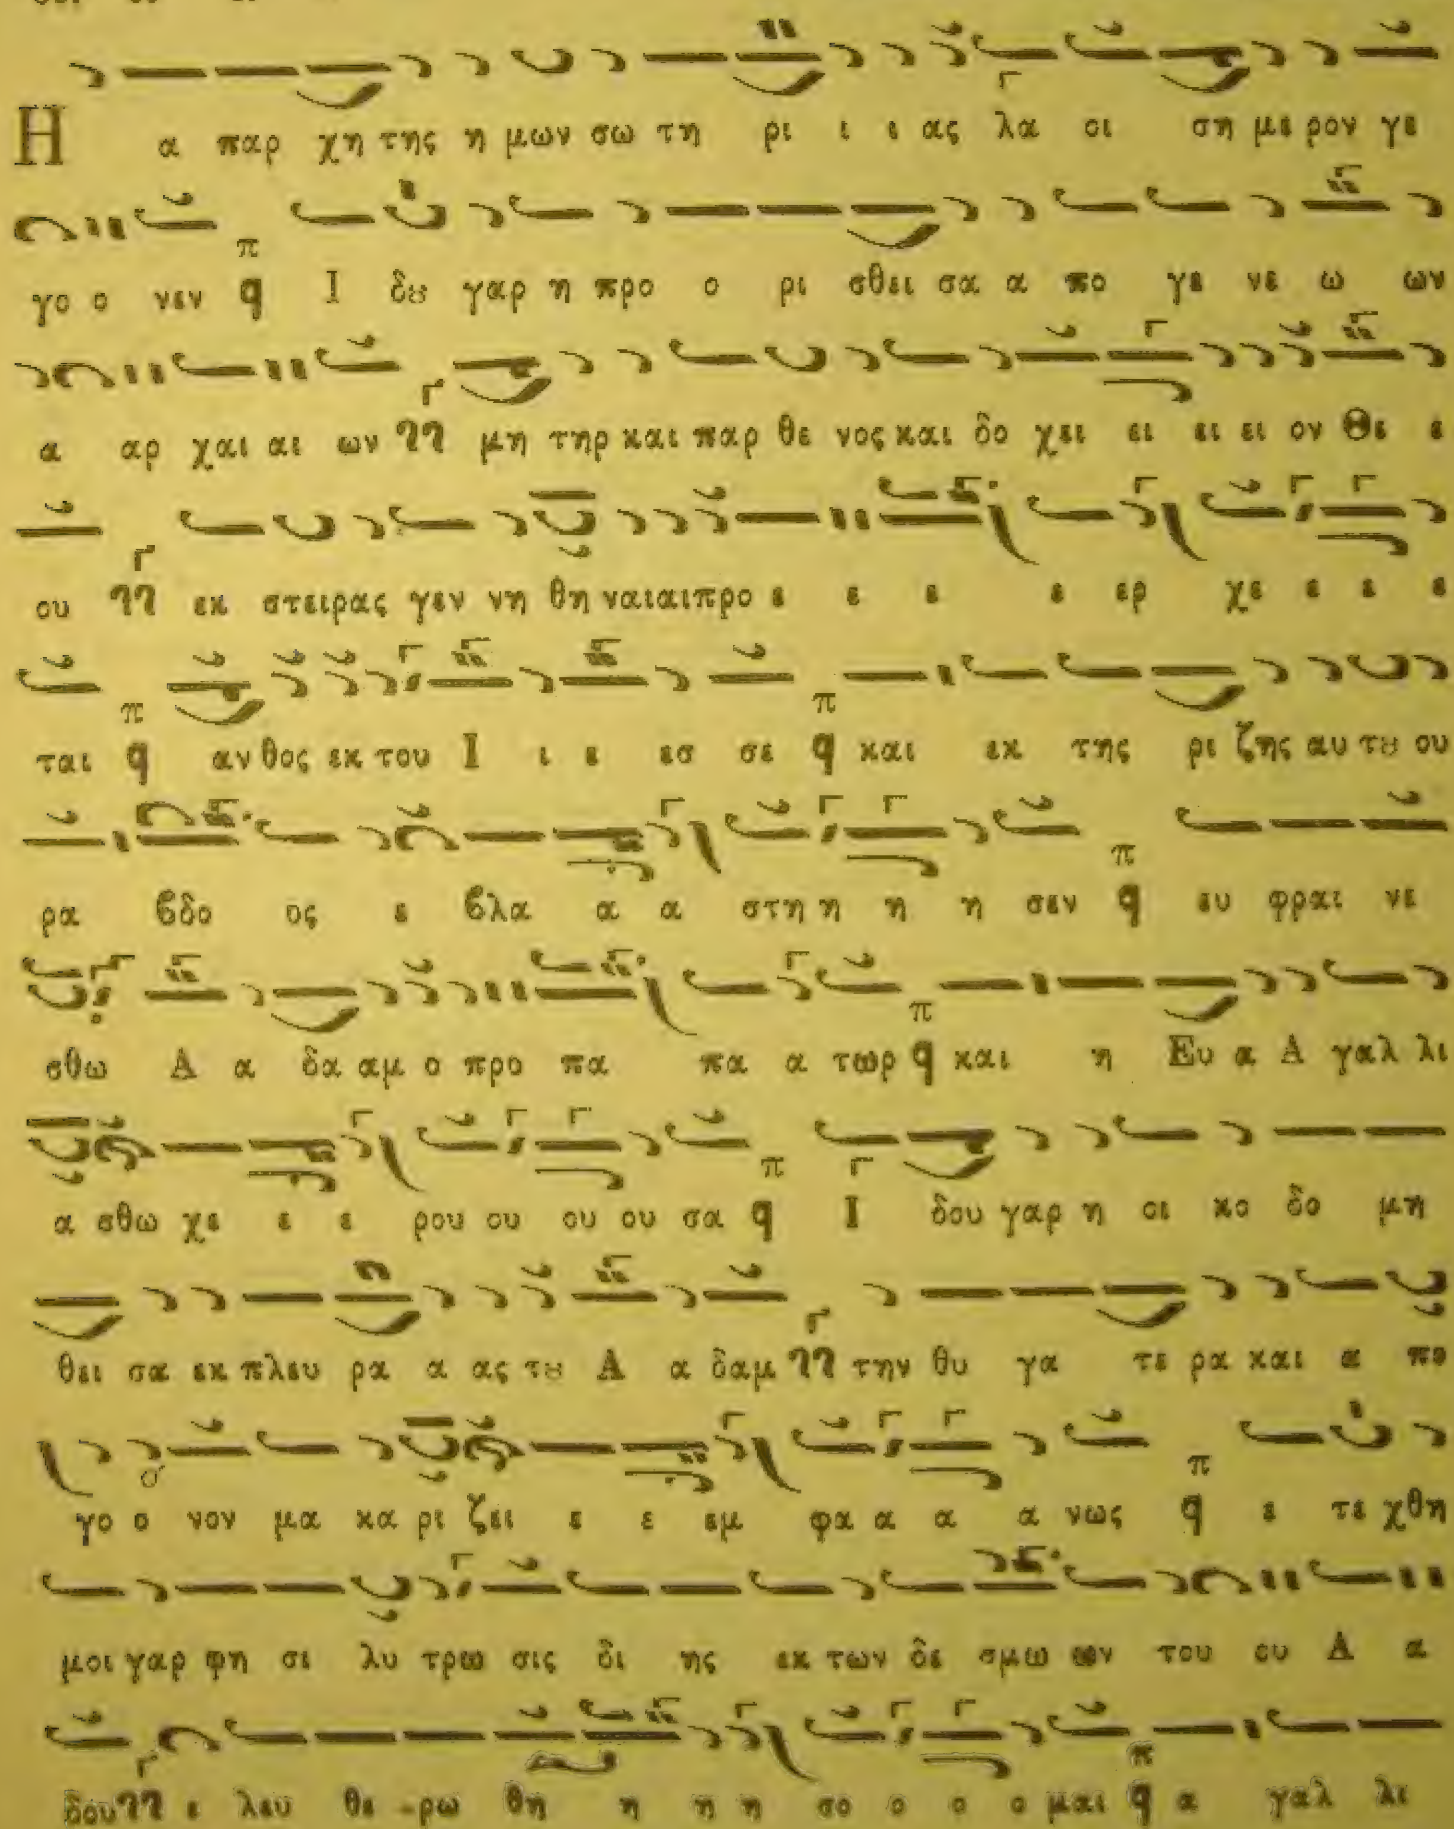 Η α παρ χη της η μων σω τη ρι ι ι ας λα οι ση με ρον γε
γο ο νεν π q Ι δȣ γαρ η προ ο ρι σθει σα α πο γε νε ω ων
α αρ χαι αι ων μη τηρ και παρ θε νος και δο χει ει ει ει ον Θε ε
ου εκ στειρας γεν νη θη ναιαιπρο ε ε ε ε ερ χε ε ε ε
ται π q αν θος εκ του Ι ι ε εσ σε π q και εκ της ρι ζης αυ τȣ ου
ρα ϐδο ος ε ϐλα α α στη η η η σεν π q ευ φραι νε
σθω Α α δα αμ ο προ πα πα α τωρ π q και η Ευ α Α γαλ λι
α σθω χε ε ε ρου ου ου ου σα π q Ι δου γαρ η οι κο δο μη
θει σα εκ πλευ ρα α ας τȣ Α α δαμ την θυ γα τε ρα και α πο
γο ο νον μα κα ρι ζει ε ε εμ φα α α α νως π q ε τε χθη
μοι γαρ φη σι λυ τρω σις δι ης εκ των δε σμω ων του ου Α α
δου ε λευ θε ρω θη η η η σο ο ο ο μαι π q α γαλ λι